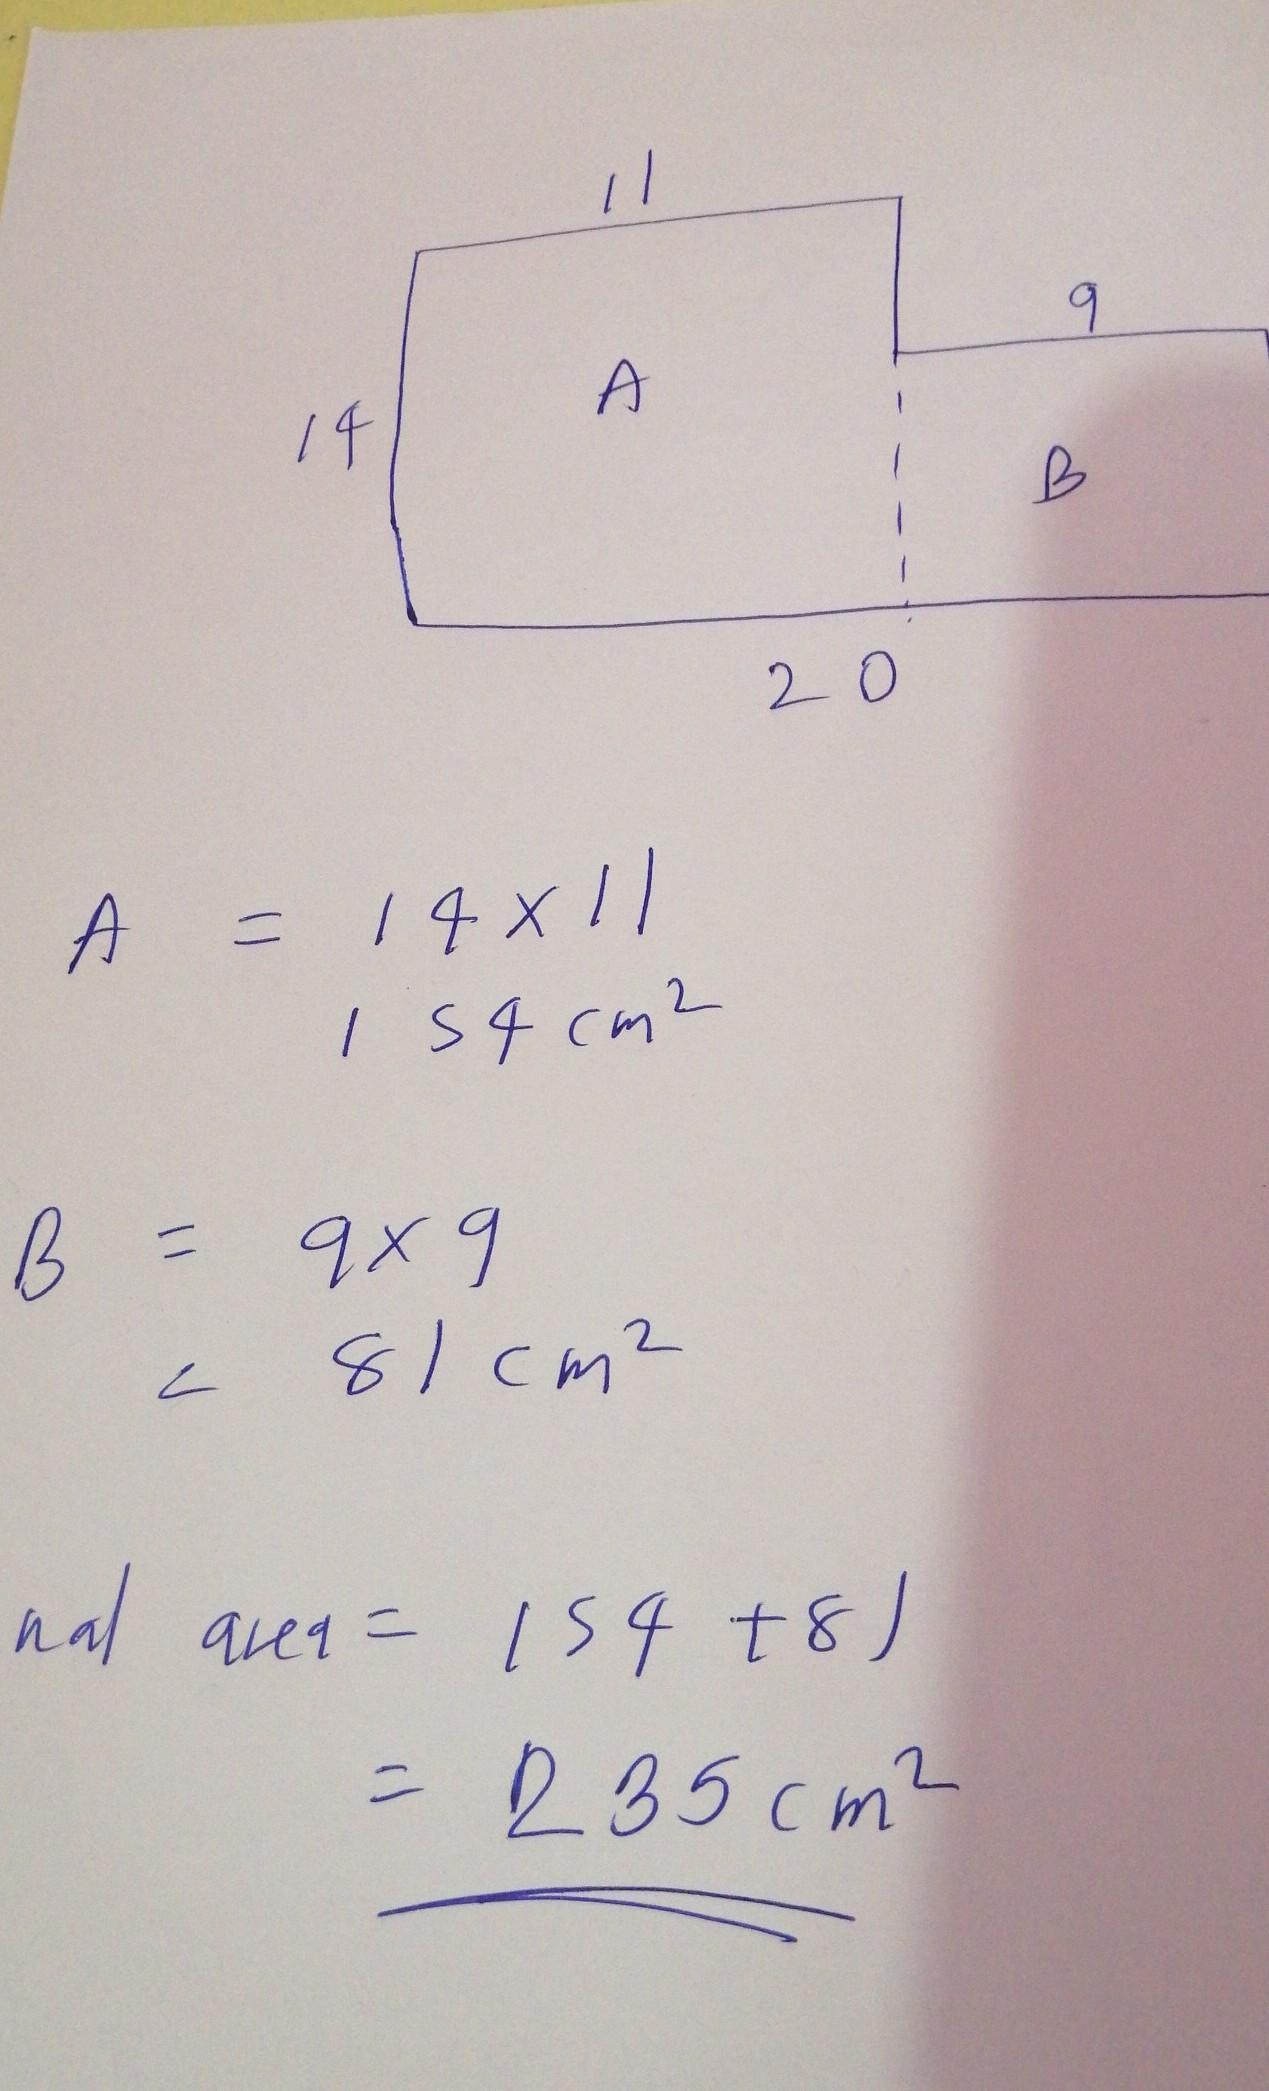 11
9
A
14
B
20
A = 14 x 11
154 cm²
B = 9 x 9
= 81 cm²
nal area = 154 + 81
= 235 cm²